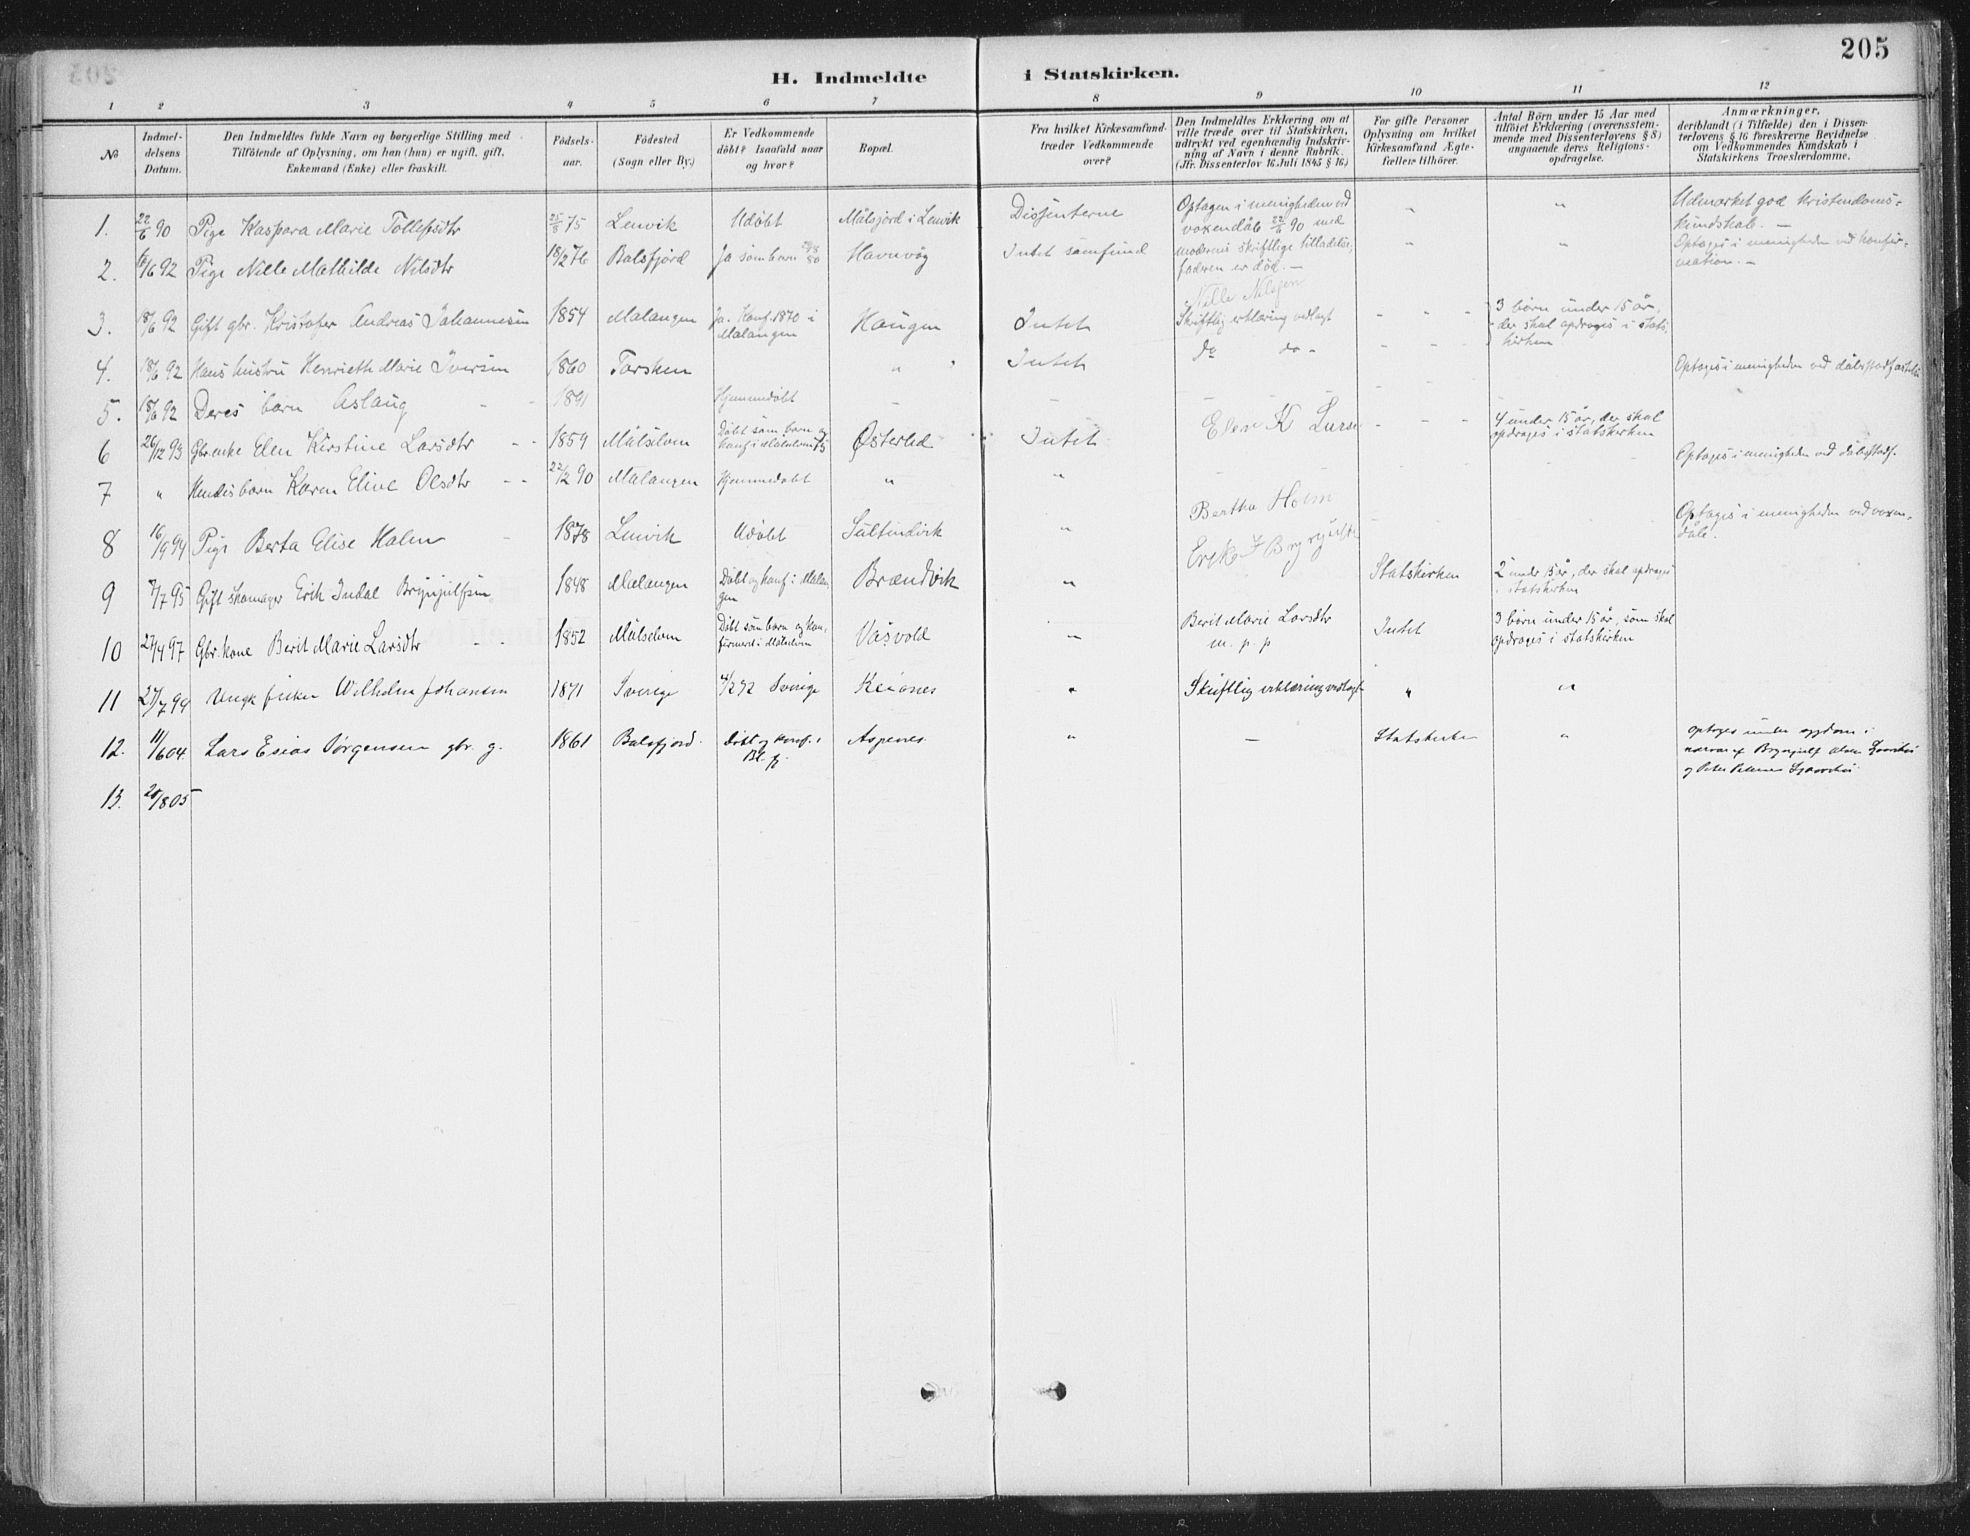 205
H. Indmeldte i Statskirken.
1 2 3 4 5 6 7 8 9 10 11 12
No
Indmel-
delsens
Datum.
Den Indmeldtes fulde Navn og borgerlige Stilling med
Tilføiende af Oplysning, om han (hun) er ugift, gift,
Enkemand (Enke) eller fraskilt.
Fødsels-
aar.
Fødested
(Sogn eller By.)
Er Vedkommende
døbt? Isaafald naar
og hvor?
Bopæl.
Fra hvilket Kirkesamfund
træder Vedkommende
over?
Den Indmeldtes Erklæring om at
ville træde over til Statskirken,
udtrykt ved egenhændig Indskriv-
ning af Navn i denne Rubrik.
(Jfr. Dissenterlov 16 Juli 1845 § 16.)
For gifte Personer
Oplysning om hvilket
Kirkesamfund Ægte-
fællen tilhører.
Antal Børn under 15 Aar med
tilføiet Erklæring (overensstem-
mende med Dissenterlovens § 8)
angaaende deres Religions-
opdragelse.
Anmærkninger,
deriblandt (i Tilfælde) den i Dissen-
terlovens § 16 foreskrevne Bevidnelse
om Vedkommendes Kundskab i
Statskirkens Troeslærdomme.
1. 22/6 90 Pige Kaspara Marie Tollefsdtr 25/5 75 Lenvik Udøbt Målsjord i Lenvik Dissenterne
Optagen i menigheden ved
voxendåb 22/6 90 med
moderens skriftlige tilladelse,
faderen er død. —
" "
Udmærket god kristendoms-
kundskab. —
2. 18/6 92 Pige Nille Mathilde Nilsdtr 18/2 76 Balsfjord Ja som barn Havnvåg Intet samfund
Nille Nilsen
" "
Optages i menigheden ved konfir-
mation. —
3. 18/6 92 Gift gbr. Kristofer Andreas Johannesen 1854 Malangen Ja. Konf. 1870 i
Malangen
Haugen Intet Skriftlig erklæring vedlagt - - -
3 børn under 15 år,
der skal opdrages i stats-
kirken
4. 18/6 92 Hans hustru Henriette Marie Iversen 1860 Torsken " Intet do do - - - - Optages i menigheden ved dåbsstadfæstelse
5. 18/6 92 Deres barn Aslaug - - 1891 Hjemmedøbt - - -
6 26/12 93 Gbr.enke Elen Kirstine Larsdtr - - 1859 Målselven Døbt som barn og
konf. i Målselven
Østerlid Intet Elen K Larse - - -
4 under 15 år, der skal
opdrages i statskirken
7 " Hendes barn Karen Eline Olsdtr - - 22/2 90 Malangen Hjemmedøbt " " - Optages i menigheden ved dåbsstadf.
8 16/9 94 Pige Berta Elise Holm - 1878 Lenvik Udøbt Sultindvik " Bertha Holm
Optages i menigheden ved voxen-
dåb.
9 7/7 95 Gift skomager Erik Indal Brynjulfsen 1848 Malangen Døbt og konf. i Malan-
gen
Brændvik " Statskirken
2 under 15 år, der skal opdrages
i statskirken
10 27/4 97 Gbr.kone Berit Marie Larsdtr - - 1852 Målselven Døbt som barn og kon-
firmert i Målselven
Vasvold " Berit Marie Larsdtr
m. p. p
Intet
3 børn under 15 år, som skal
opdrages i statskirken
11 27/7 99 Ungk fisker Wilhelm Johansen 1871 Sverige 4/2 72 Sverige " Skriftlig erklæring vedlagt " "
12. 11/6 04. Lars Esias Jørgensen gbr. g. 1861 Balsfjord. døbt og konf. i
Bl. fj.
Aspenes " — Statskirken "
optages under sygdom i
nærvær af Brynjulf
og Peter
13. 20/8 05